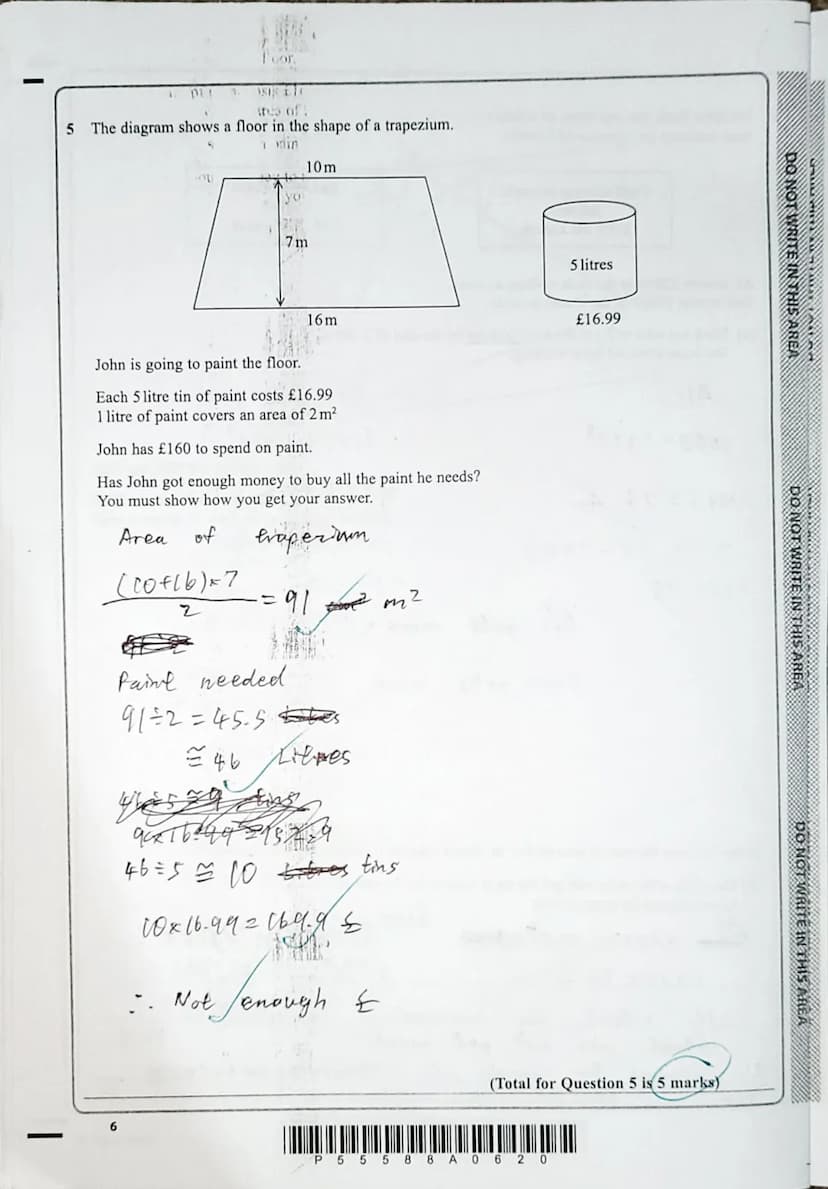 5 The diagram shows a floor in the shape of a trapezium.
10 m
7 m
16 m
5 litres
£16.99
John is going to paint the floor.
Each 5 litre tin of paint costs £16.99
1 litre of paint covers an area of 2 m²
John has £160 to spend on paint.
Has John got enough money to buy all the paint he needs?
You must show how you get your answer.
Area of traperium
(10+16)×7
2
= 91 m²
Paint needed
91÷2 = 45.5
≅ 46 Litres
46÷5 ≅ 10 tins
10×16.99 = 169.9 £
∴ Not enough £
(Total for Question 5 is 5 marks)
6
P 5 5 5 8 8 A 0 6 2 0
DO NOT WRITE IN THIS AREA
DO NOT WRITE IN THIS AREA
DO NOT WRITE IN THIS AREA